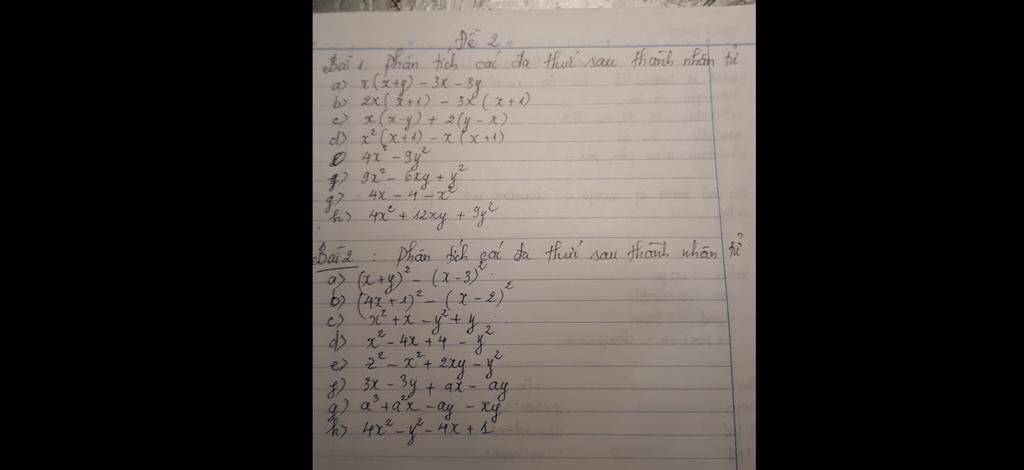 Đề 2
Bài 1: Phân tích các đa thức sau thành nhân tử
a) x(x+y) - 3x - 3y
b) 2x(x+1) - 3x(x+1)
c) x(x-y) + 2(y-x)
d) x²(x+1) - x(x+1)
e) 4x² - 9y²
f) 9x² - 6xy + y²
g) 4x - 4 - x²
h) 4x² + 12xy + 9y²
Bài 2: Phân tích các đa thức sau thành nhân tử
a) (x+y)² - (x-3)²
b) (4x+1)² - (x-2)²
c) x² + x - y² + y
d) x² - 4x + 4 - y²
e) z² - x² + 2xy - y²
f) 3x - 3y + ax - ay
g) a³ + a²x - ay - xy
h) 4x² - y² - 4x + 1